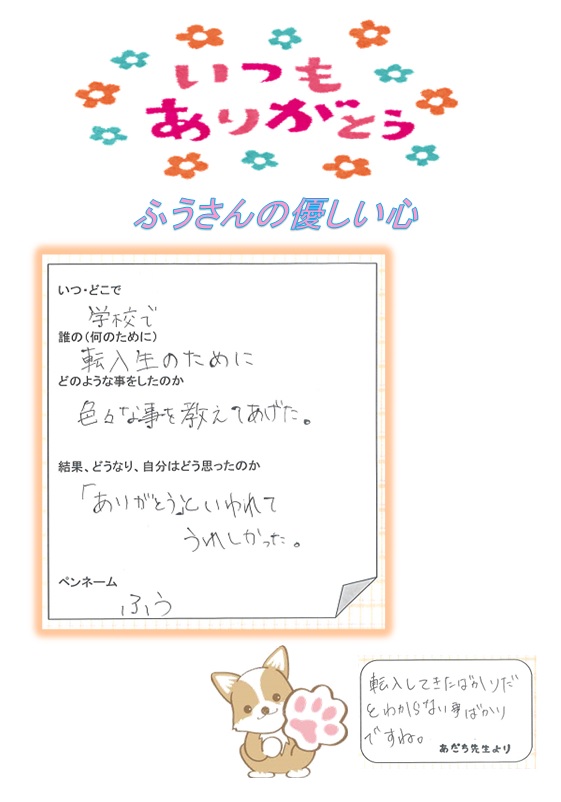 いつも
ありがとう
ふうさんの優しい心
いつ・どこで
学校で
誰の（何のために）
転入生のために
どのような事をしたのか
色々な事を教えてあげた。
結果、どうなり、自分はどう思ったのか
「ありがとう」といわれて
うれしかった。
ペンネーム
ふう
転入してきたばかりだ
とわからない事ばかり
ですね。
あだち先生より